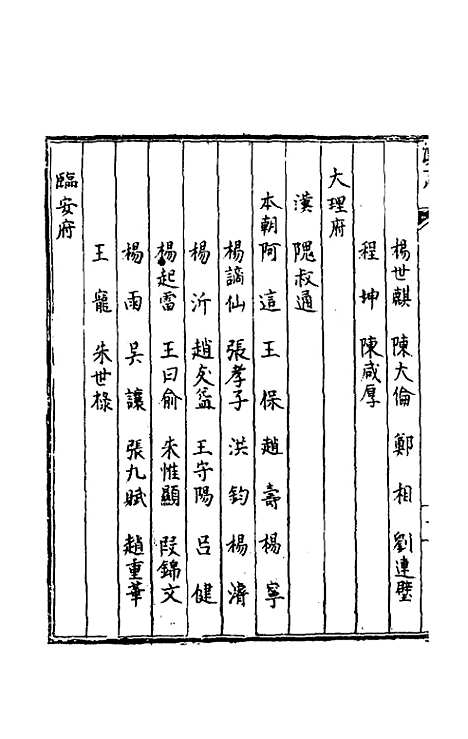 楊世麒 陳大倫 鄭相 劉連璧
程坤 陳咸厚
大理府
漢 隗叔通
本朝 阿這 王保 趙壽 楊寧
楊謫仙 張孝子 洪鈞 楊濬
楊沂 趙 王守陽 呂健
楊起雷 王曰俞 朱惟顯 段錦文
楊雨 吳讓 張九賦 趙重華
王寵 朱世祿
臨安府